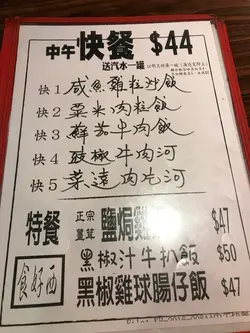 中午快餐 $44
送汽水一罐
快1 咸魚雞粒炒飯
快2 粟米肉粒飯
快3 鮮茄牛肉飯
快4 豉椒牛肉河
快5 菜遠肉片河
特餐 正宗薑茸 鹽焗雞 $47
黑椒汁牛扒飯 $50
黑椒雞球腸仔飯 $47
食好西